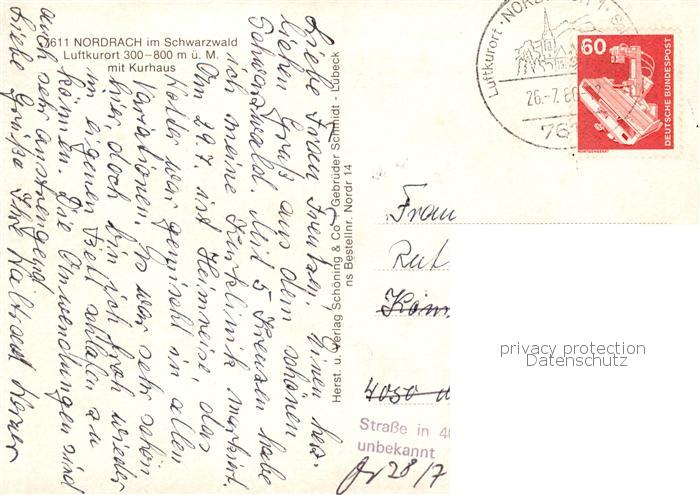 7611 NORDRACH im Schwarzwald
Luftkurort 300–800 m ü. M.
mit Kurhaus
Liebe Frau Frentzen. Einen herz-
lichen Gruß aus dem schönen
Schwarzwald. Mit 5 Kreuzen habe
ich meine Kurklinik markiert.
Am 29.7. ist Heimreise, das
Wetter war gemischt in allen
Variationen. Es war sehr schön
hier, doch bin ich froh wieder
im eigenen Bett schlafen zu
können. Die Anwendungen sind
auch sehr anstrengend
Liebe Grüße Ihre Werner
Herst. u. Verlag Schöning & Co · Gebrüder Schmidt · Lübeck
ns Bestellnr. Nordr 14
Luftkurort · NORDRACH 1 ·
26.-7.80
761
60
DEUTSCHE BUNDESPOST
RÖNTGENGERÄT
Frau
Rut
4050
Straße in 4
unbekannt
28/7
privacy protection
Datenschutz